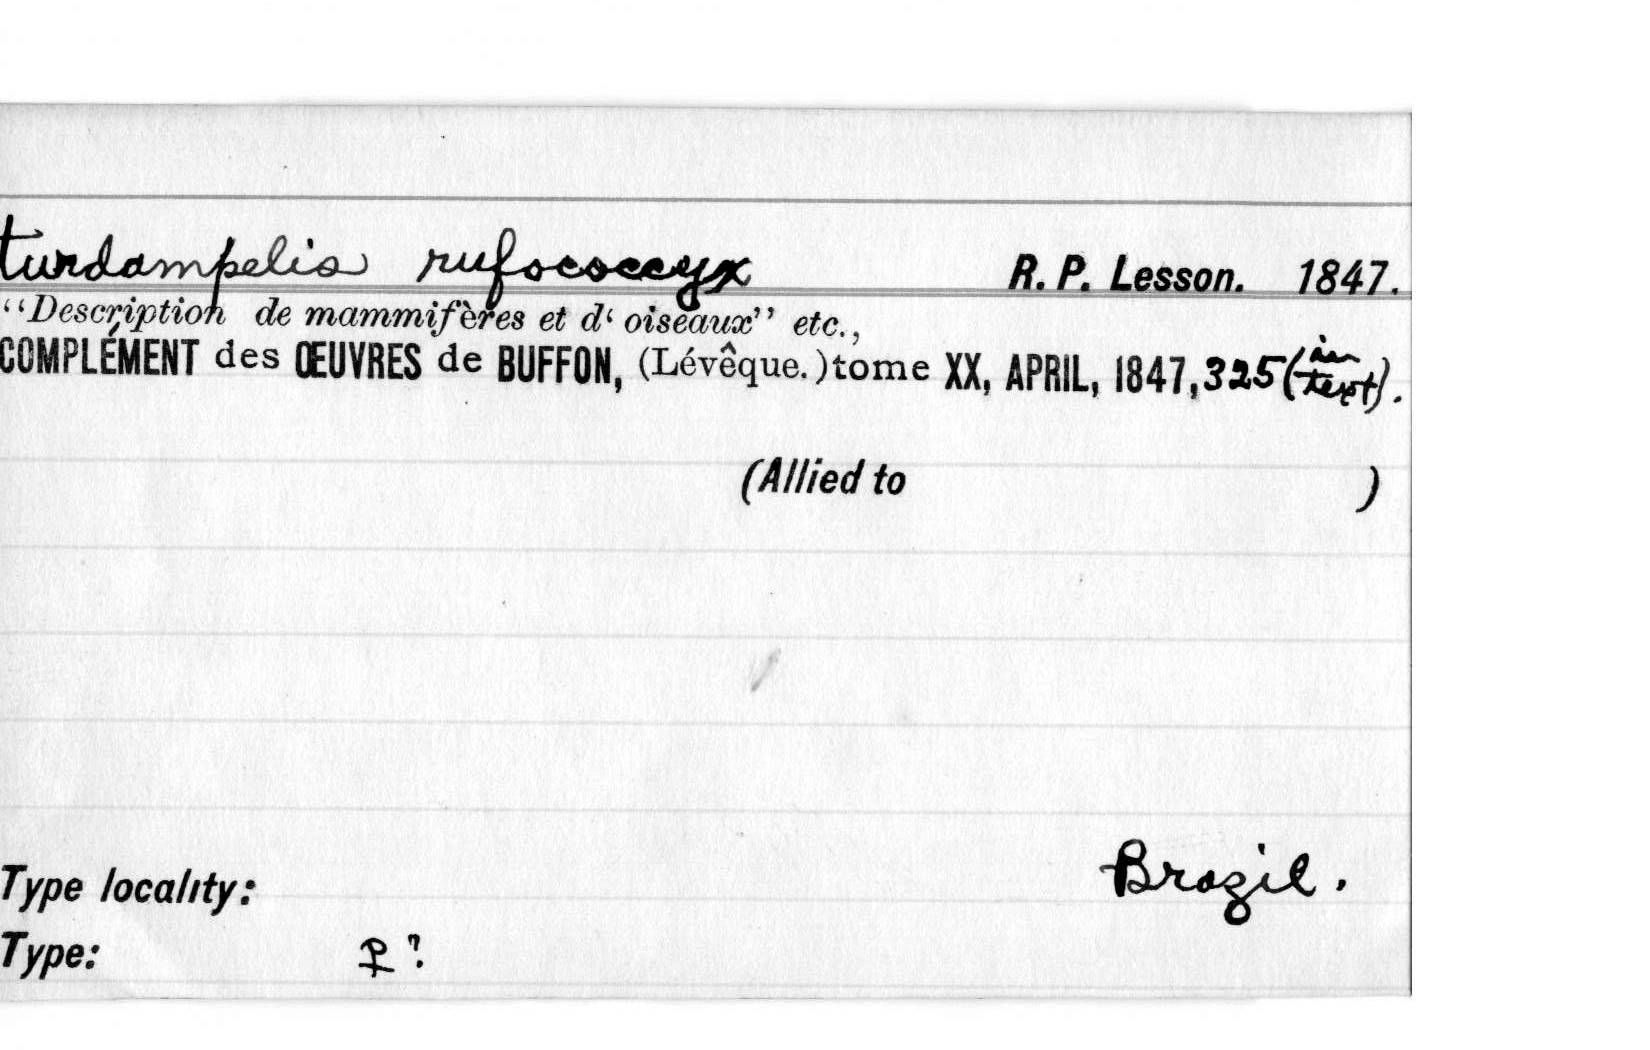 turdampelis rufococcyx R. P. Lesson. 1847.
“Description de mammifères et d‘ oiseaux” etc.,
COMPLÉMENT des ŒUVRES de BUFFON, (Lévêque.) tome XX, APRIL, 1847, 325 (in text).
(Allied to )
Type locality: Brazil.
Type: ♀?